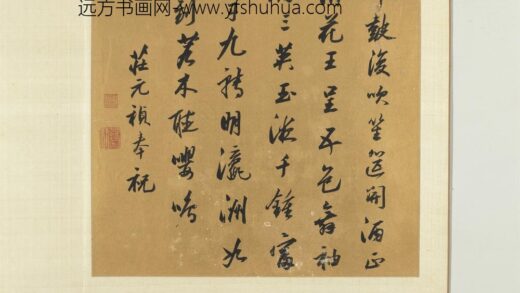 远方书画网 www.yfshuhua.com
鼓浚吹笙筵開酒正
花王呈五色舞袖
三英玉液千鍾富
九轉明瀛洲如
到若木聽嚶鳴
莊元禎奉祝